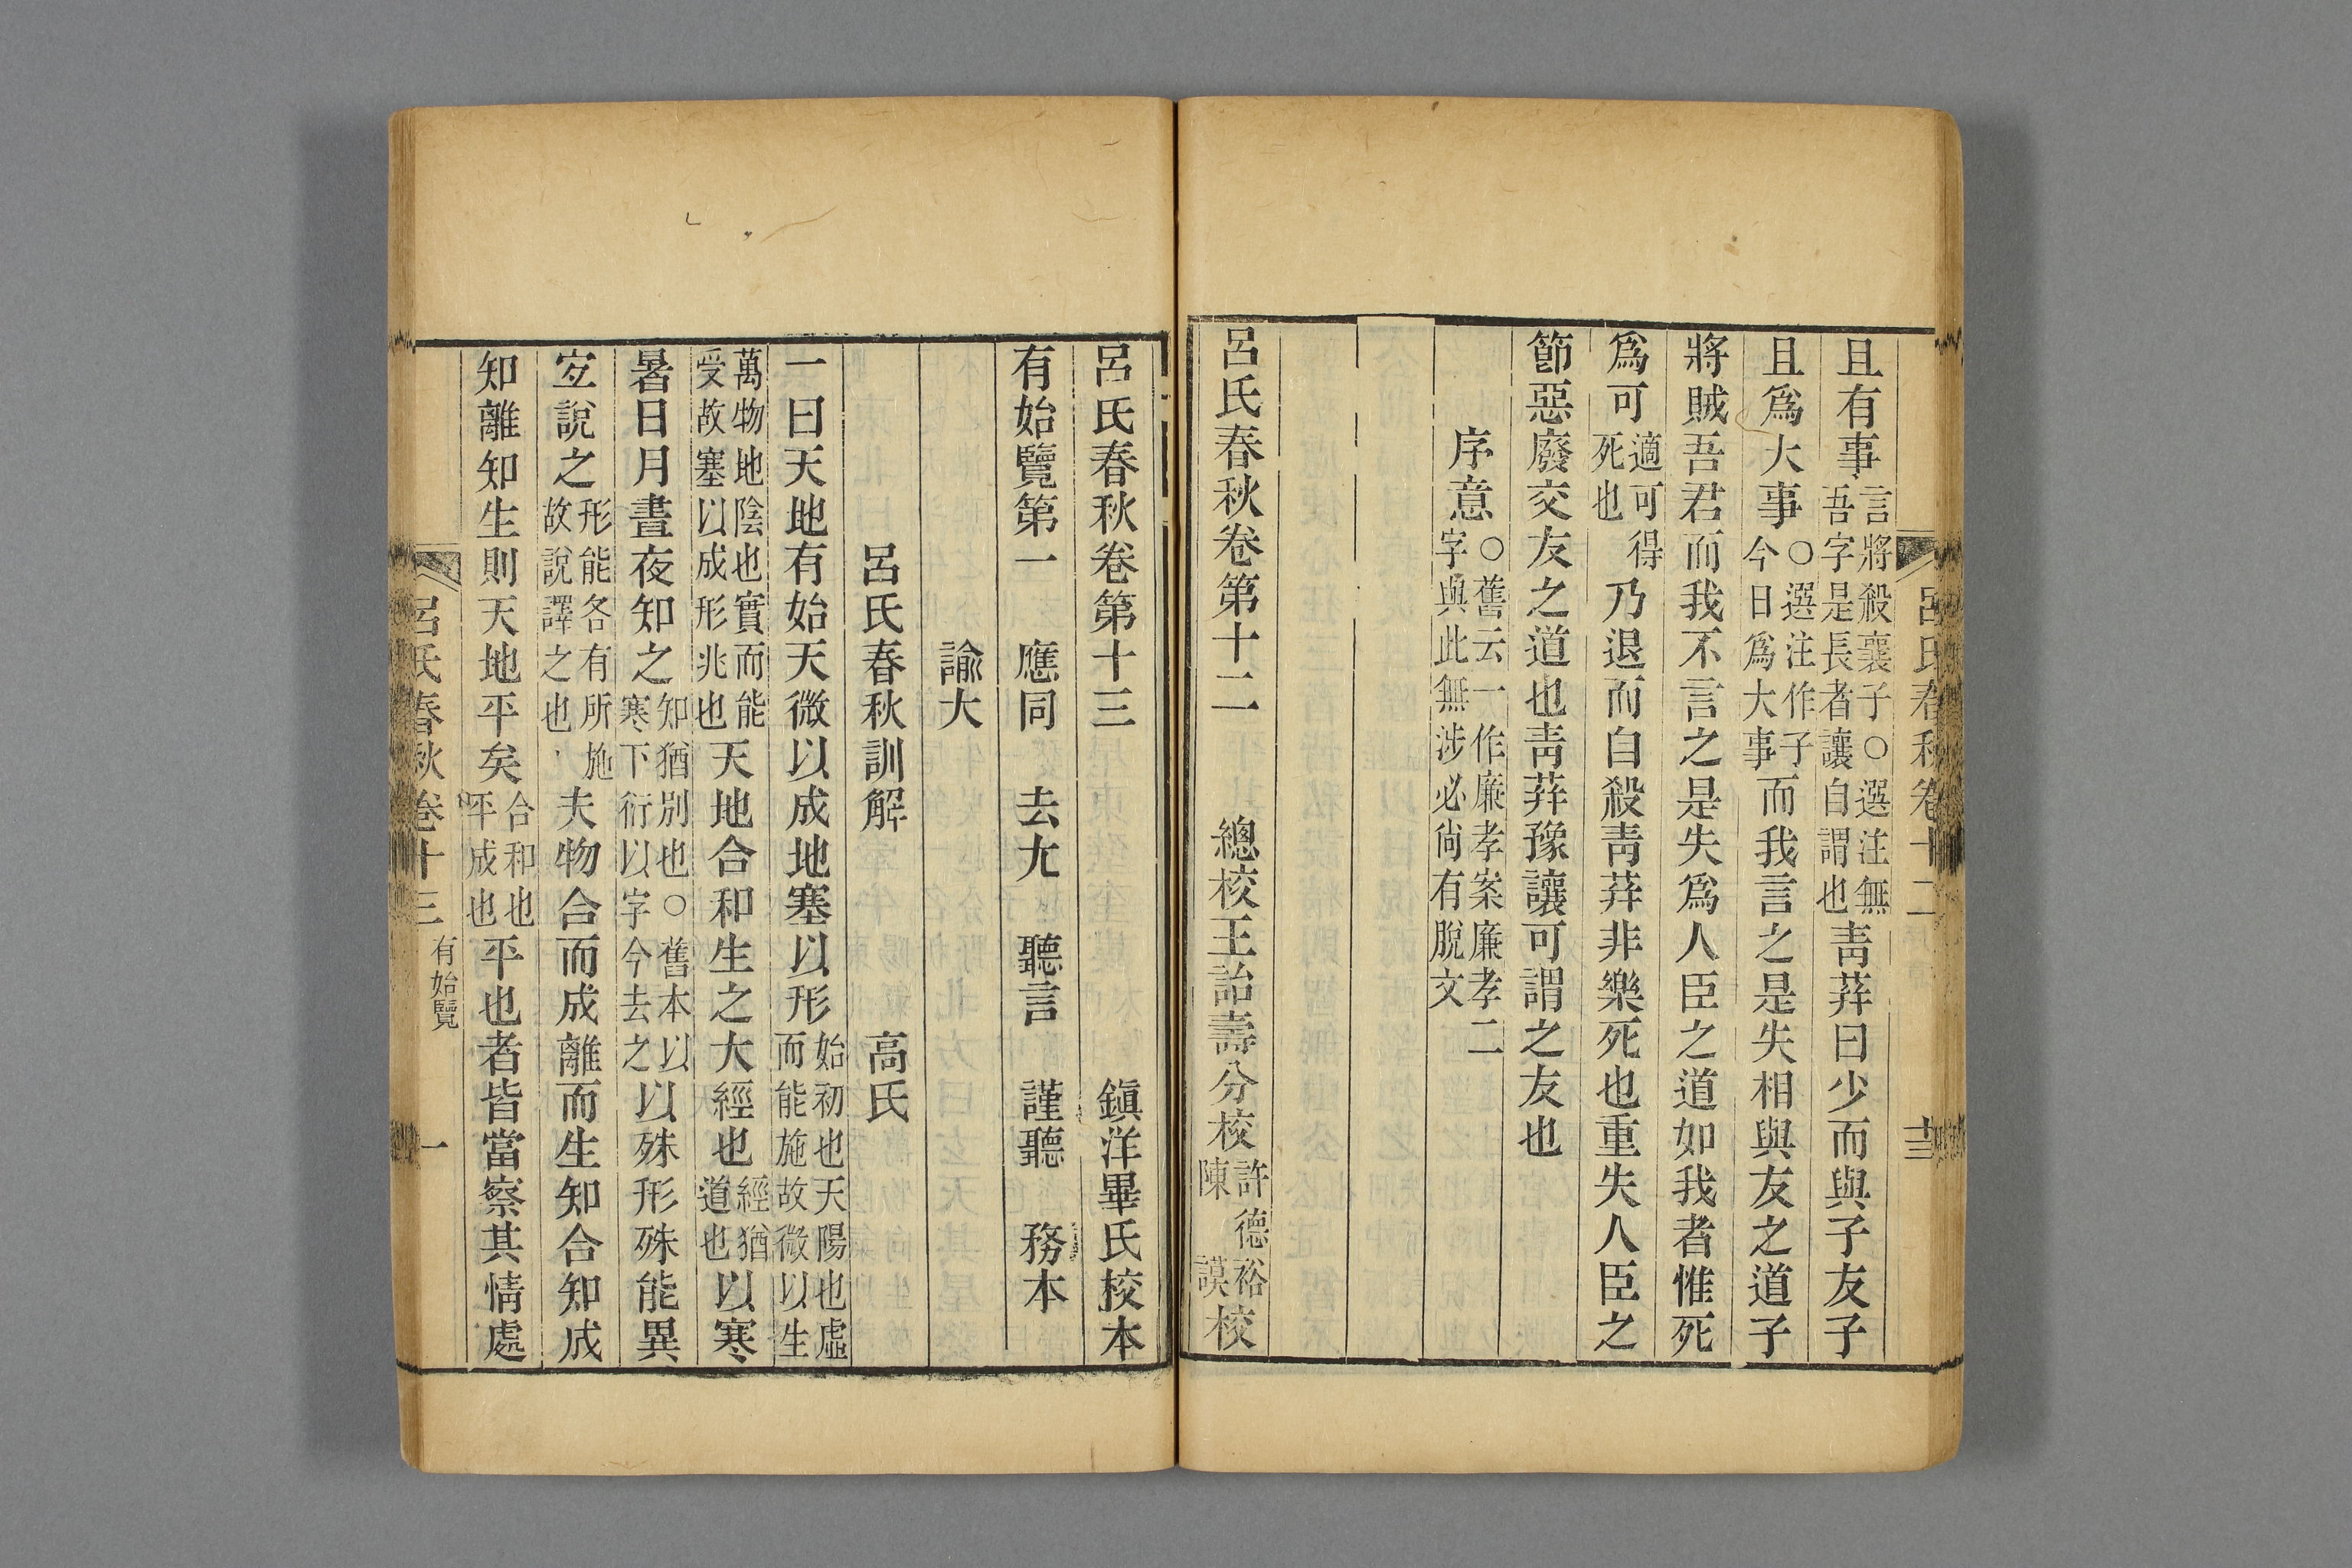 呂氏春秋卷十二 十三
且有事言將殺襄子○選注無吾字是長者讓自謂也青荓曰少而與子友子
且爲大事○選注作子今日爲大事而我言之是失相與友之道子
將賊吾君而我不言之是失爲人臣之道如我者惟死
爲可適可得死也乃退而自殺青荓非樂死也重失人臣之
節惡廢交友之道也青荓豫讓可謂之友也
序意○舊云一作廉孝案廉孝二字與此無涉必尙有脫文
呂氏春秋卷第十二 總校王詒壽分校許德裕陳謨校
呂氏春秋卷第十三 鎭洋畢氏校本
有始覽第一 應同 去尤 聽言 謹聽 務本
諭大
呂氏春秋訓解 高氏
一曰天地有始天微以成地塞以形始初也天陽也虛而能施故微以生
萬物地陰也實而能受故塞以成形兆也天地合和生之大經也經猶道也以寒
暑日月晝夜知之知猶別也○舊本以寒下衍以字今去之以殊形殊能異
宐說之形能各有所施故說譯之也夫物合而成離而生知合知成
知離知生則天地平矣合和也平成也平也者皆當察其情處
呂氏春秋卷十三 有始覽 一